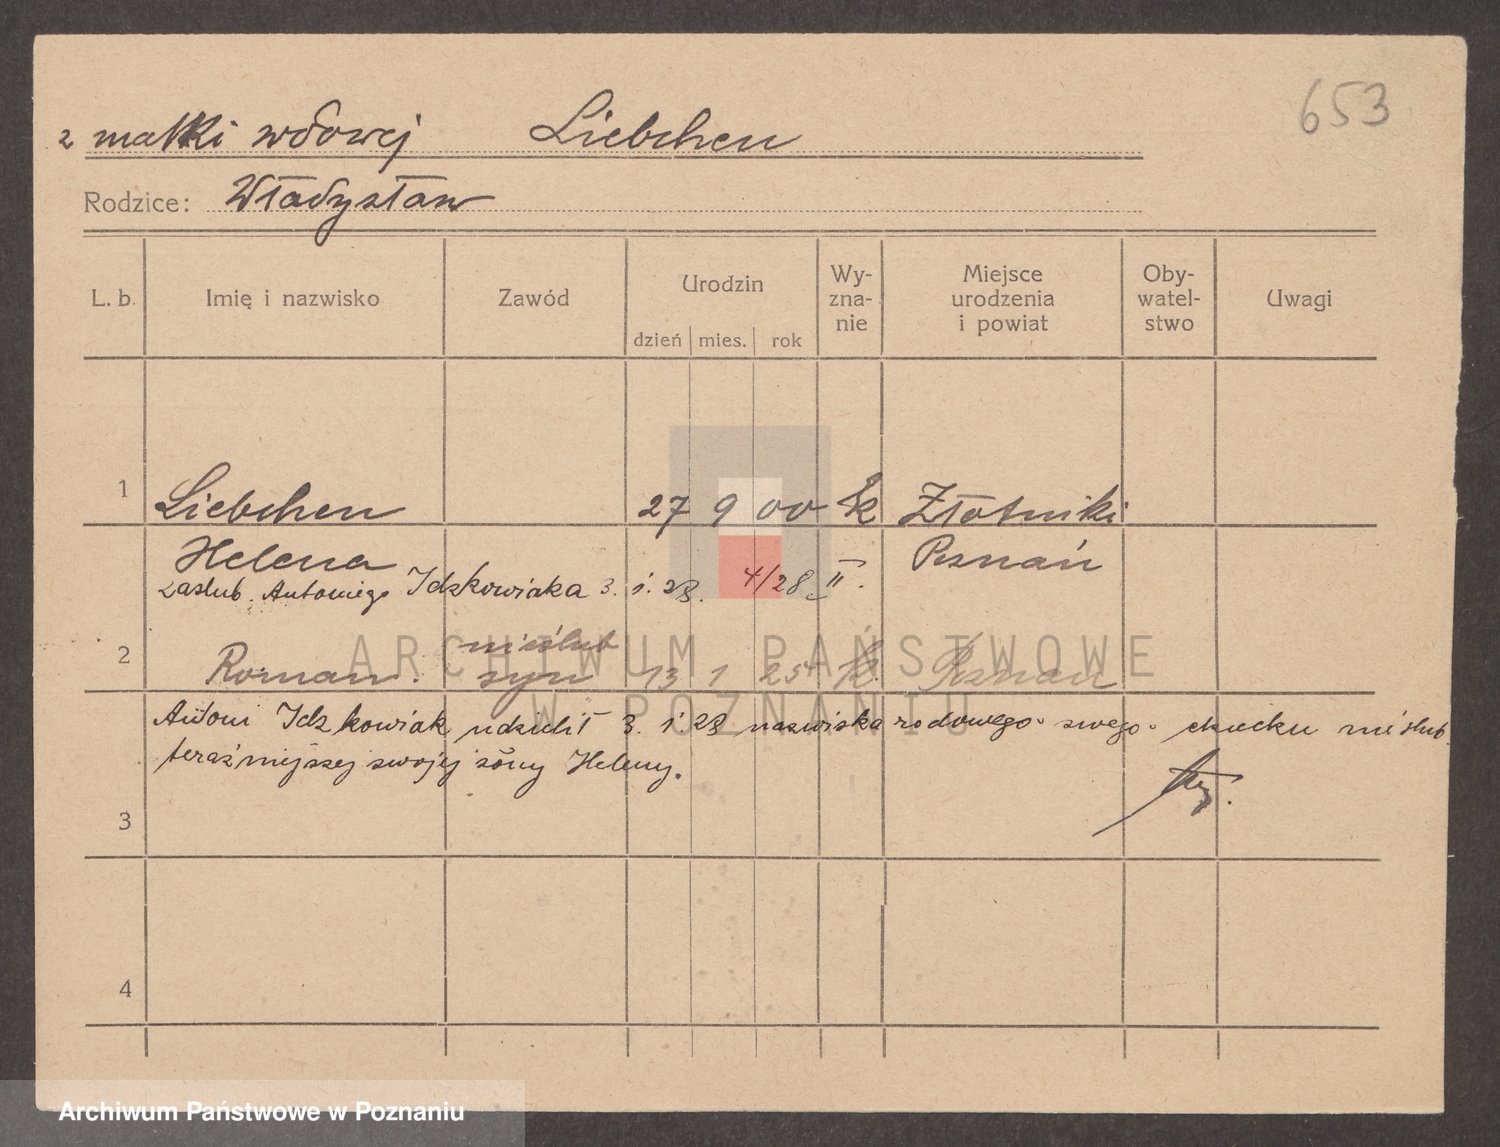 653
z matki wdowej Liebchen
Rodzice: Władysław
L. b. Imię i nazwisko Zawód Urodzin Wy- Miejsce Oby- Uwagi
zna- urodzenia watel-
nie i powiat stwo
dzień mies. rok
1 Liebchen 27 9 00 k Złotniki
Helena Poznań
zaślub. Antoniego Idzkowiaka 3. 1. 28. 4/28 II.
nieślub
2 Roman. syn 13 1 25 k. Poznań
ARCHIWUM PAŃSTWOWE
W POZNANIU
Antoni Idzkowiak udzielił 3. 1. 28 nazwiska rodowego swego dziecku nieślub.
teraźniejszej swojej żony Heleny.
3
4
Archiwum Państwowe w Poznaniu